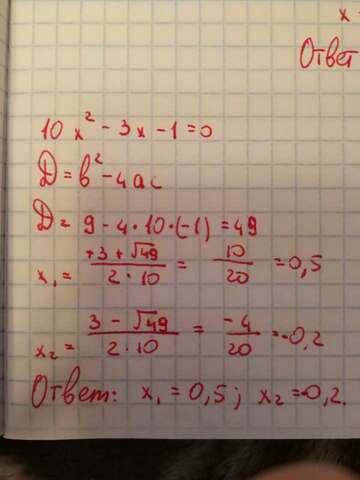 x
Ответ
10x² - 3x - 1 = 0
D = b² - 4ac
D = 9 - 4 · 10 · (-1) = 49
x₁ = (+3 + √49)/(2 · 10) = 10/20 = 0,5
x₂ = (3 - √49)/(2 · 10) = -4/20 = -0,2
Ответ: x₁ = 0,5; x₂ = -0,2.